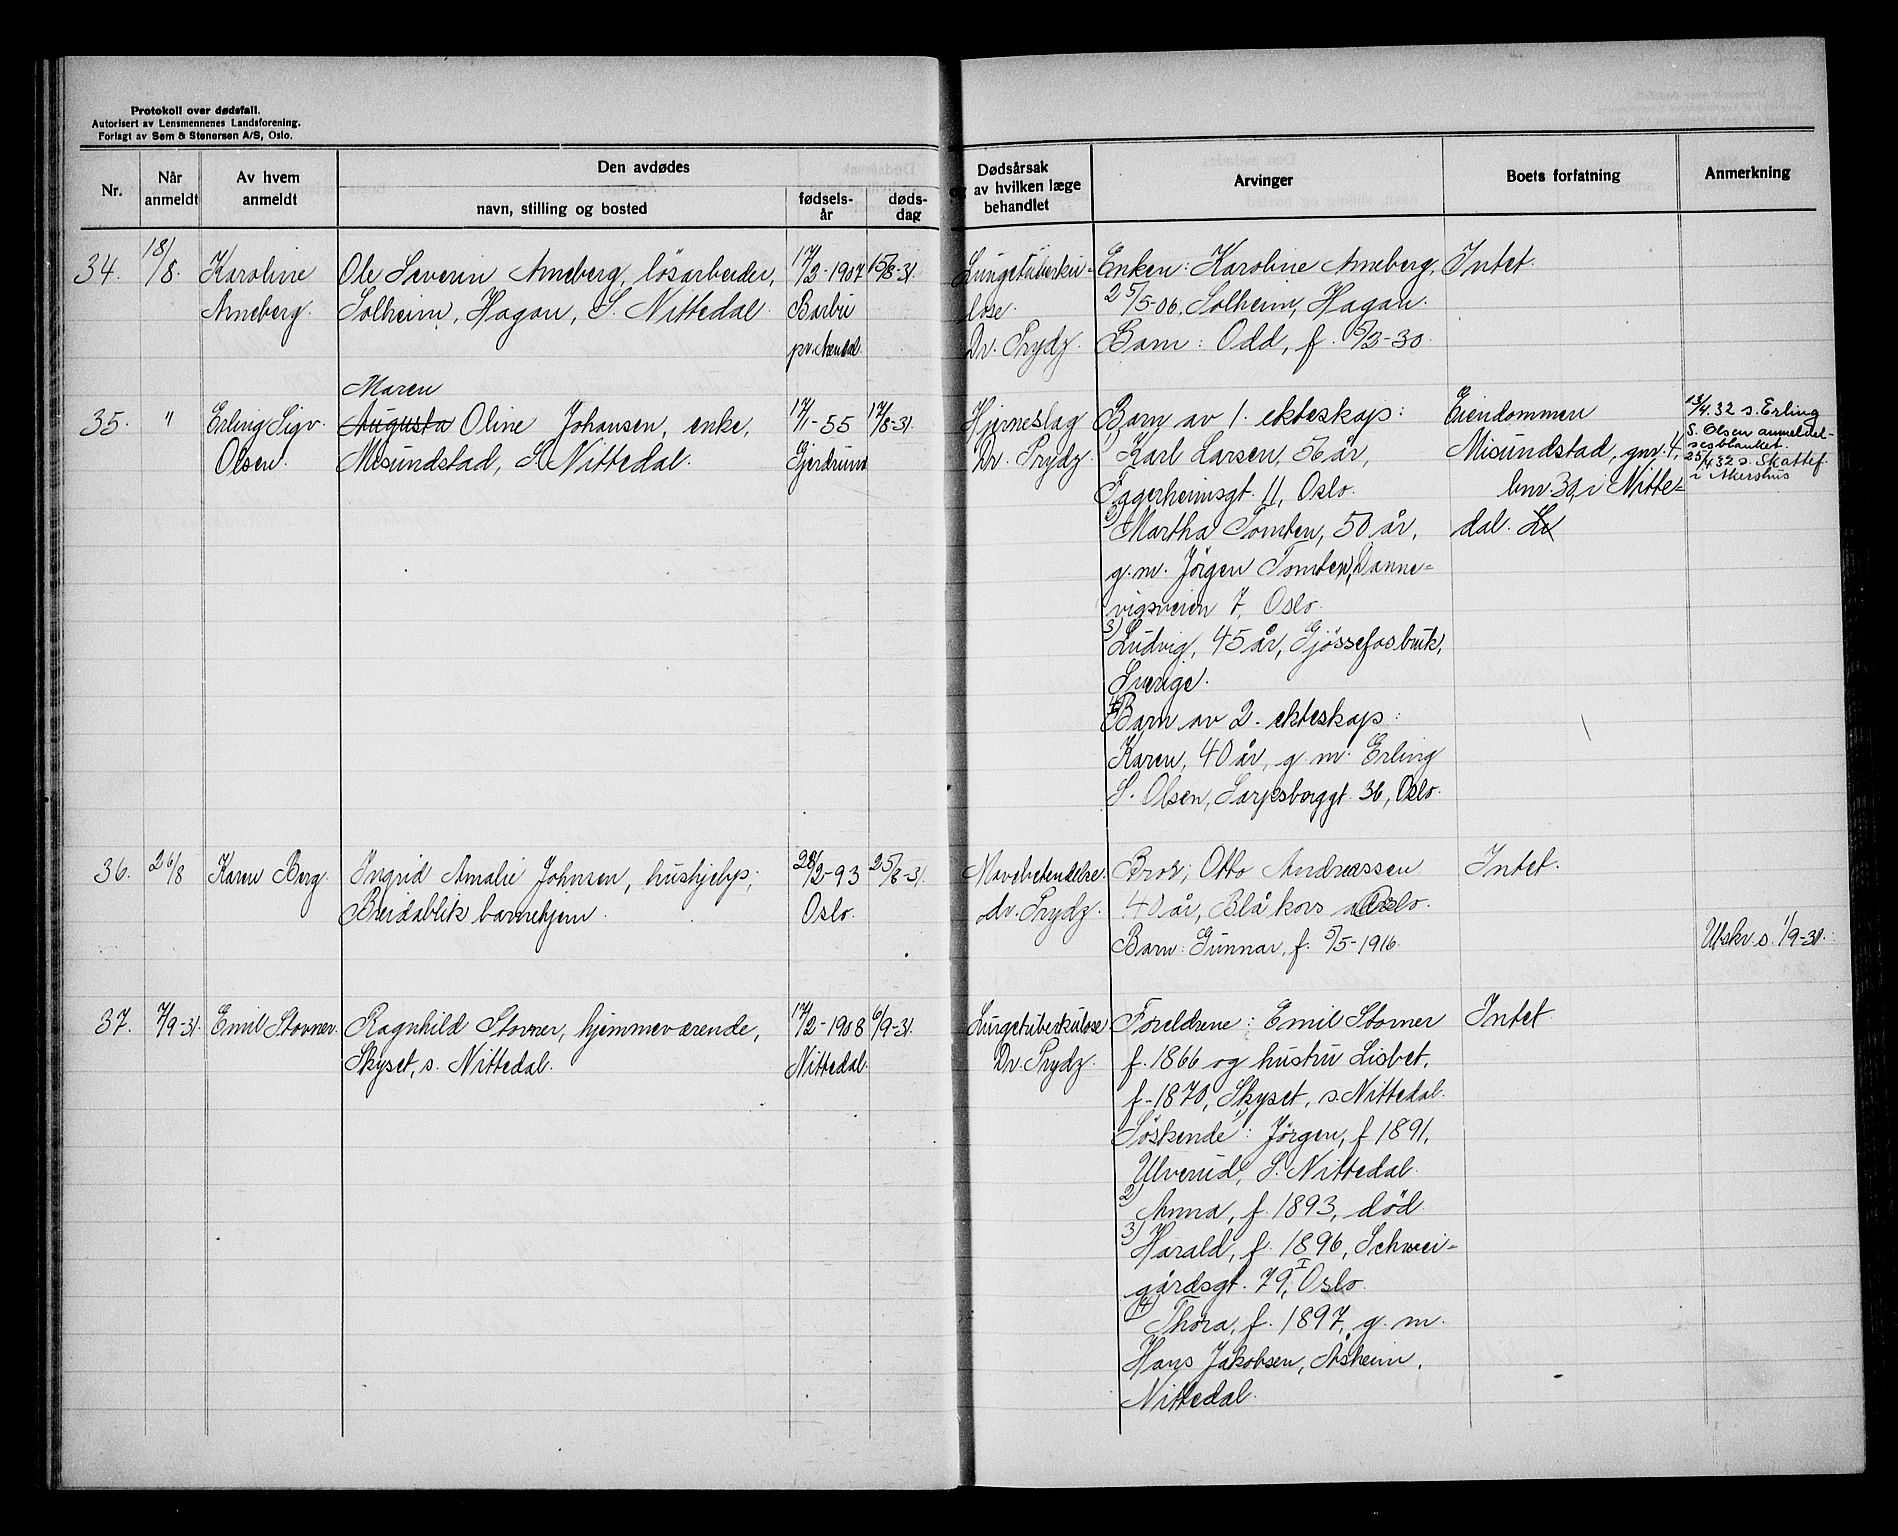 Protokoll over dødsfall.
Autorisert av Lensmennenes Landsforening.
Forlagt av Sem & Stenersen A/S, Oslo.
Nr.
Når anmeldt
Av hvem anmeldt
Den avdødes
navn, stilling og bosted
fødsels-år
døds-dag
Dødsårsak
og av hvilken læge
behandlet
Arvinger
Boets forfatning
Anmerkning
34.
18/8.
Karoline
Arneberg.
Ole Severin Arneberg, løsarbeider,
Solheim, Hagan, S. Nittedal.
17/2-1907
Barbu
pr. Arendal.
15/8-31
Lungetuberku-
lose.
Dr. Prydz.
Enken: Karoline Arneberg,
25/5-06, Solheim, Hagan.
Barn: Odd, f. 5/3-30.
Intet.
35.
"
Erling Sigv.
Olsen.
Maren
Augusta Oline Johansen, enke,
Misundstad, S. Nittedal.
17/1-55
Gjerdrum
17/8-31.
Hjerneslag
Dr. Prydz
Barn av 1. ekteskap:
1) Karl Larsen, 56 år,
Iggerheimsgt. 11, Oslo.
2) Martha Tomten, 50 år,
g.m. Jörgen Tomten, Danne-
vigsveien 7, Oslo.
3) Ludvig, 45 år, Gjössefosbruk,
Sverige.
4) Barn av 2. ekteskap:
Karen, 40 år, g.m. Erling
S. Olsen, Sarpsborggt. 36, Oslo.
Eiendommen
Misundstad, gnr. 4,
bnr. 39 i Nitte-
dal.
13/4.32 s. Erling
S. Olsen anmeldel-
sesblanket.
25/4 32 s. Skattef.
i Akershus
36.
26/8
Karen Berg.
Ingrid Amalie Johnsen, hushjelp,
Breidablik barnehjem.
28/2-93
Oslo.
25/8-31.
Mavebetendelse.
dr. Prydz.
Bror, Otto Andreassen
40 år, Blå kors Oslo.
Barn: Gunnar, f. 5/5-1916.
Intet.
Utskr. s. 1/9-31.
37.
7/9-31.
Emil Stovner.
Ragnhild Stovner, hjemmeværende,
Skyset, s. Nittedal.
17/2-1908
Nittedal.
6/9-31.
Lungetuberkulose
Dr. Prydz.
Foreldrene: Emil Stovner
f. 1866 og hustru Lisbet,
f. 1870, Skyset, s. Nittedal.
Söskende: 1) Jörgen, f 1891,
Ulverud, S. Nittedal.
2) Anna, f. 1893, död
3) Harald, f. 1896, Schwei-
gårdsgt. 79, I Oslo.
4) Thora, f. 1897, g.m.
Hans Jakobsen, Åsheim,
Nittedal.
Intet